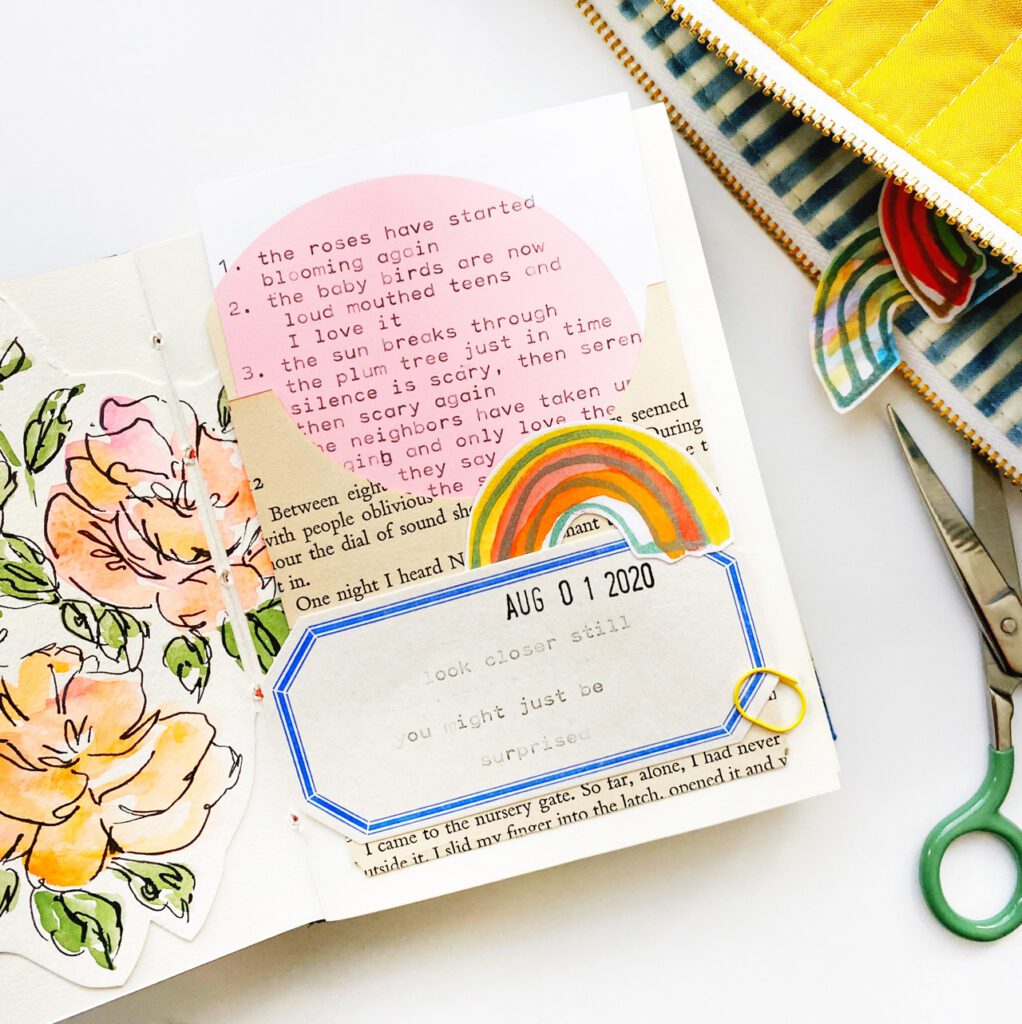 1. the roses have started
blooming again
2. the baby birds are now
loud mouthed teens and
I love it
3. the sun breaks through
the plum tree just in time
silence is scary, then seren
then scary again
neighbors have taken
and only love the
they say
the
seemed
During
2
Between eigh
with people oblivious
our the dial of sound
t in.
One night I heard N
AUG 01 2020
look closer still
you might just be
surprised
I came to the nursery gate. So far, alone, I had never
outside it. I slid my finger into the latch, opened it and